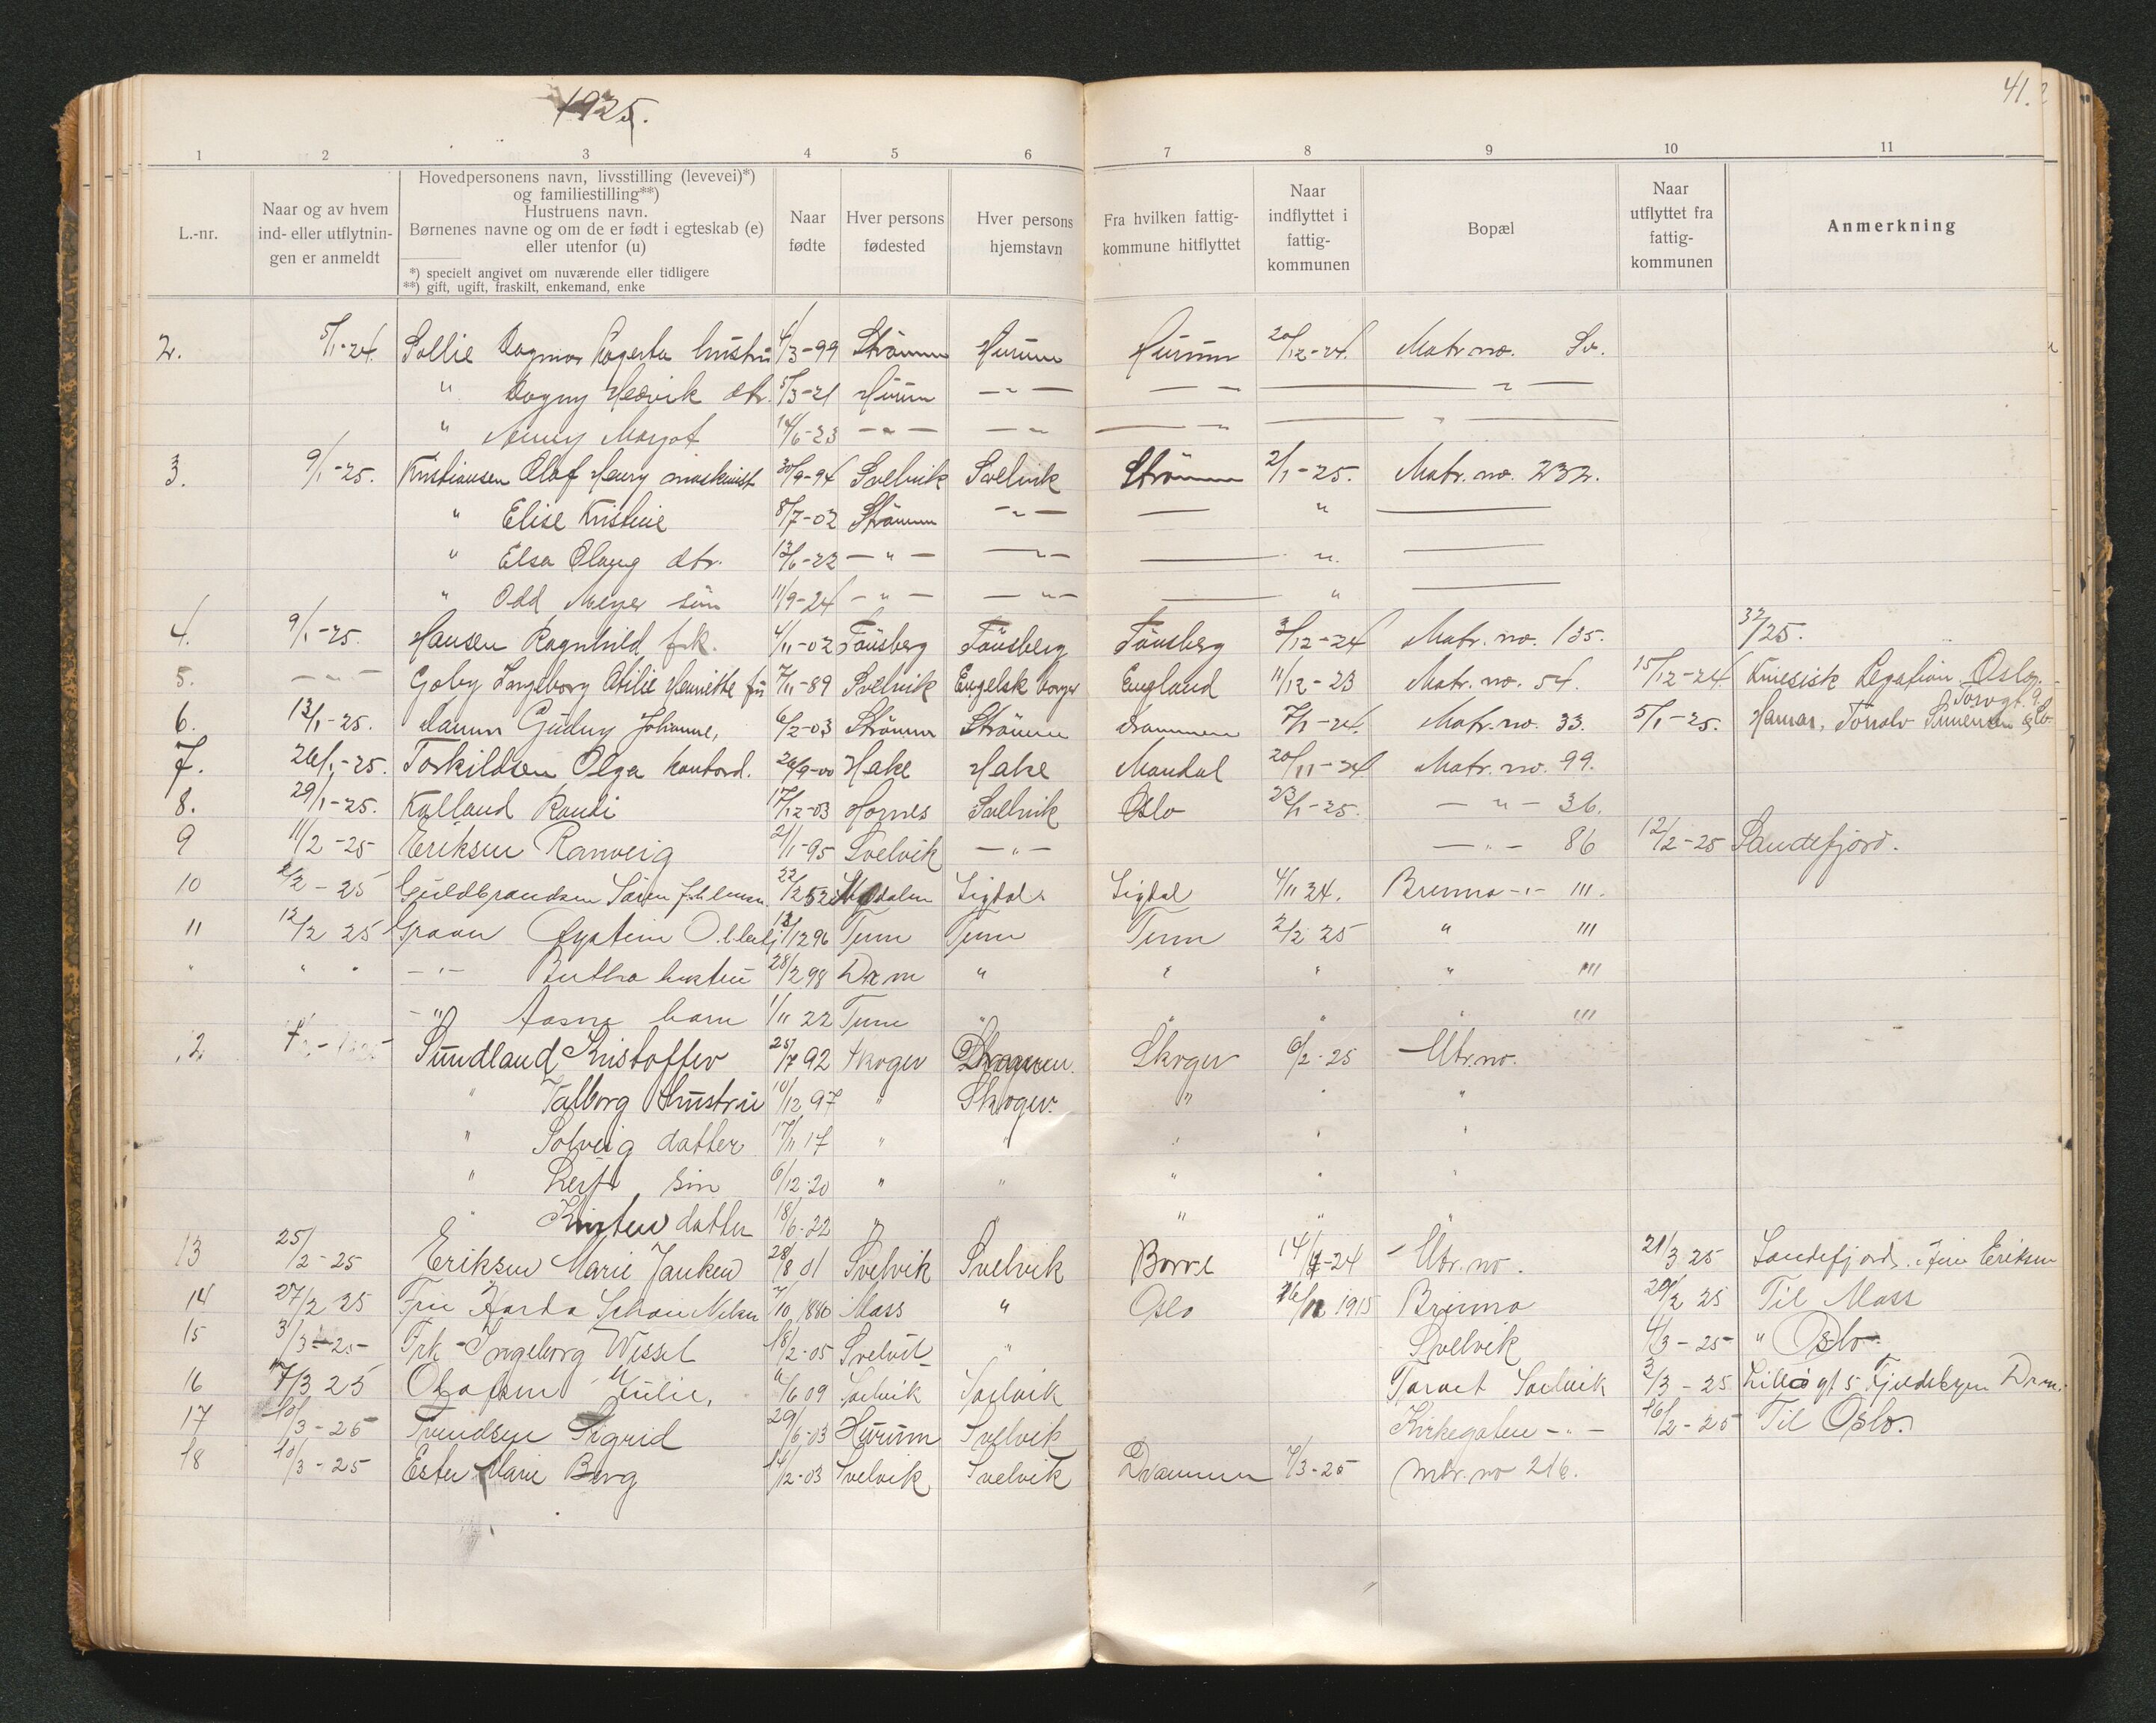 1925.
41.
1 2 3 4 5 6 7 8 9 10 11
L.-nr.
Naar og av hvem ind- eller utflytnin- gen er anmeldt
Hovedpersonens navn, livsstilling (levevei)*)
og familiestilling**)
Hustruens navn.
Børnenes navne og om de er født i egteskab (e)
eller utenfor (u)
*) specielt angivet om nuværende eller tidligere
**) gift, ugift, fraskilt, enkemand, enke
Naar fødte
Hver persons fødested
Hver persons hjemstavn
Fra hvilken fattig- kommune hitflyttet
Naar indflyttet i fattig- kommunen
Bopæl
Naar utflyttet fra fattig- kommunen
Anmerkning
2. 5/1-24. Sollie Dagmar hustru 4/3-99 Strömm Hurum Hurum 20/12-24. Matr. no. Sv.
" Dagny Hedvik dtr. 5/3-21 Hurum — " — — " — — " —
" Margot 14/6-23 — " — — " — " — "
3. 9/1-25. Kristiansen Olaf Henry maskinist 30/9-94 Svelvik Svelvik Strömm 2/1-25. Matr. no. 232.
" Elise Kristine 8/7-02 Strömm — " — — " —
" Elsa Olaug dtr. 13/6-22 — " — — " — — " —
" Odd sön 11/9-24 — " — — " — — " —
4. 9/1-25. Hansen Ragnhild frk. 4/11-02 Tönsberg Tönsberg Tönsberg 3/12-24 Matr. no. 135. 32/25.
5. — " — Goby Ingeborg Otilie Henriette fru 7/11-89 Svelvik Engelsk borger England 11/12-23 Matr. no. 54. 15/12-24 Kinesisk Legation Oslo.
6. 13/1-25. Gudny Johanne, 6/2-03 Strömm Strömm Drammen 7/1-24. Matr. no. 33. 5/1-25. Hamar, Torvgt. 9.
7. 26/1-25. Torkildsen Olga kontord. 26/9-00 Hake Hake Mandal 20/11-24 Matr. no. 99.
8. 29/1-25. Kalland Randi 17/12-03 Hornes Svelvik Oslo 23/1-25. — " — 36.
9 11/2-25 Eriksen Ranveig 21/1-95 Svelvik — " — — " — 86 12/2-25 Sandefjord.
10 2/2-25 Guldbrandsen Sören 22/2 52 Sigdal Sigdal 4/11 24. Brenna — " — 111.
11 12/2 25 Graver Öystein 13/12 96 Tune Tune Tune 2/2 25 " 111
" " " — " — hustru 28/2 98 Drm " " " " 111
— " Aasne barn 1/11 22 Tune " " " " 111
12 Sundland Kristoffer 25/7 92 Skoger Skoger 6/2-25 Mtr. no.
" Valborg hustru 10/12 97 " Skoger. " " "
" Solveig datter 17/11 17 " " " " "
" Leif sön 6/12-20 " " " " "
" Kirsten datter 18/6-22 " " " " "
13 25/2-25 Eriksen Marie 28/8 01 Svelvik Svelvik Borre 14/7-24 Mtr. no. 21/3 25 Sandefjord. Eriksen
14 27/2 25 Fru Nilsen 7/10 1880 Moss " Oslo 26/12 1915 Brenna 29/2 25 Til Moss
15 3/3-25 Frk Ingeborg Wessel 18/2-05 Svelvik " Svelvik 4/3-25 " Oslo
16 7/3 25 Olafsen Julie, 4/6 09 Svelvik Svelvik Torvet Svelvik 3/3-25 Lilleö gt 5 Fjeldebyen Drm.
17 10/3-25 Svendsen Sigrid 29/6-03 Hurum Svelvik Kirkegaten — " — 16/2-25 Til Oslo.
18 10/3-25 Ester Marie Berg 14/2-03 Svelvik Svelvik Drammen 7/3-25 mtr. no 216.